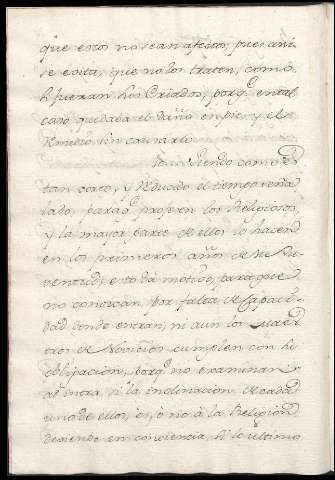 que estos no sean afectos, pues ani
se evita, que no los traten, como si
fueran sus Criados, porq.e en tal
caso quedaba el daño en pie, y el re
medio sin causarlo.
Siendo como es
tan corto, y reducido el tiempo seña
lado, para q.e profesen los Religiosos,
y la mayor parte de ellos lo hacen
en los primeros años de su Ju
ventud, esto dá motivo, para que
no conozcan, por falta de Capaci
dad donde entran, ni aun los Maes
tros de Novicios cumplen con su
obligacion, porq.e no examinan
al entrar, si la inclinacion de cada
uno de ellos, es, ò no à la Religion,
debiendo en conciencia, si lo ultimo